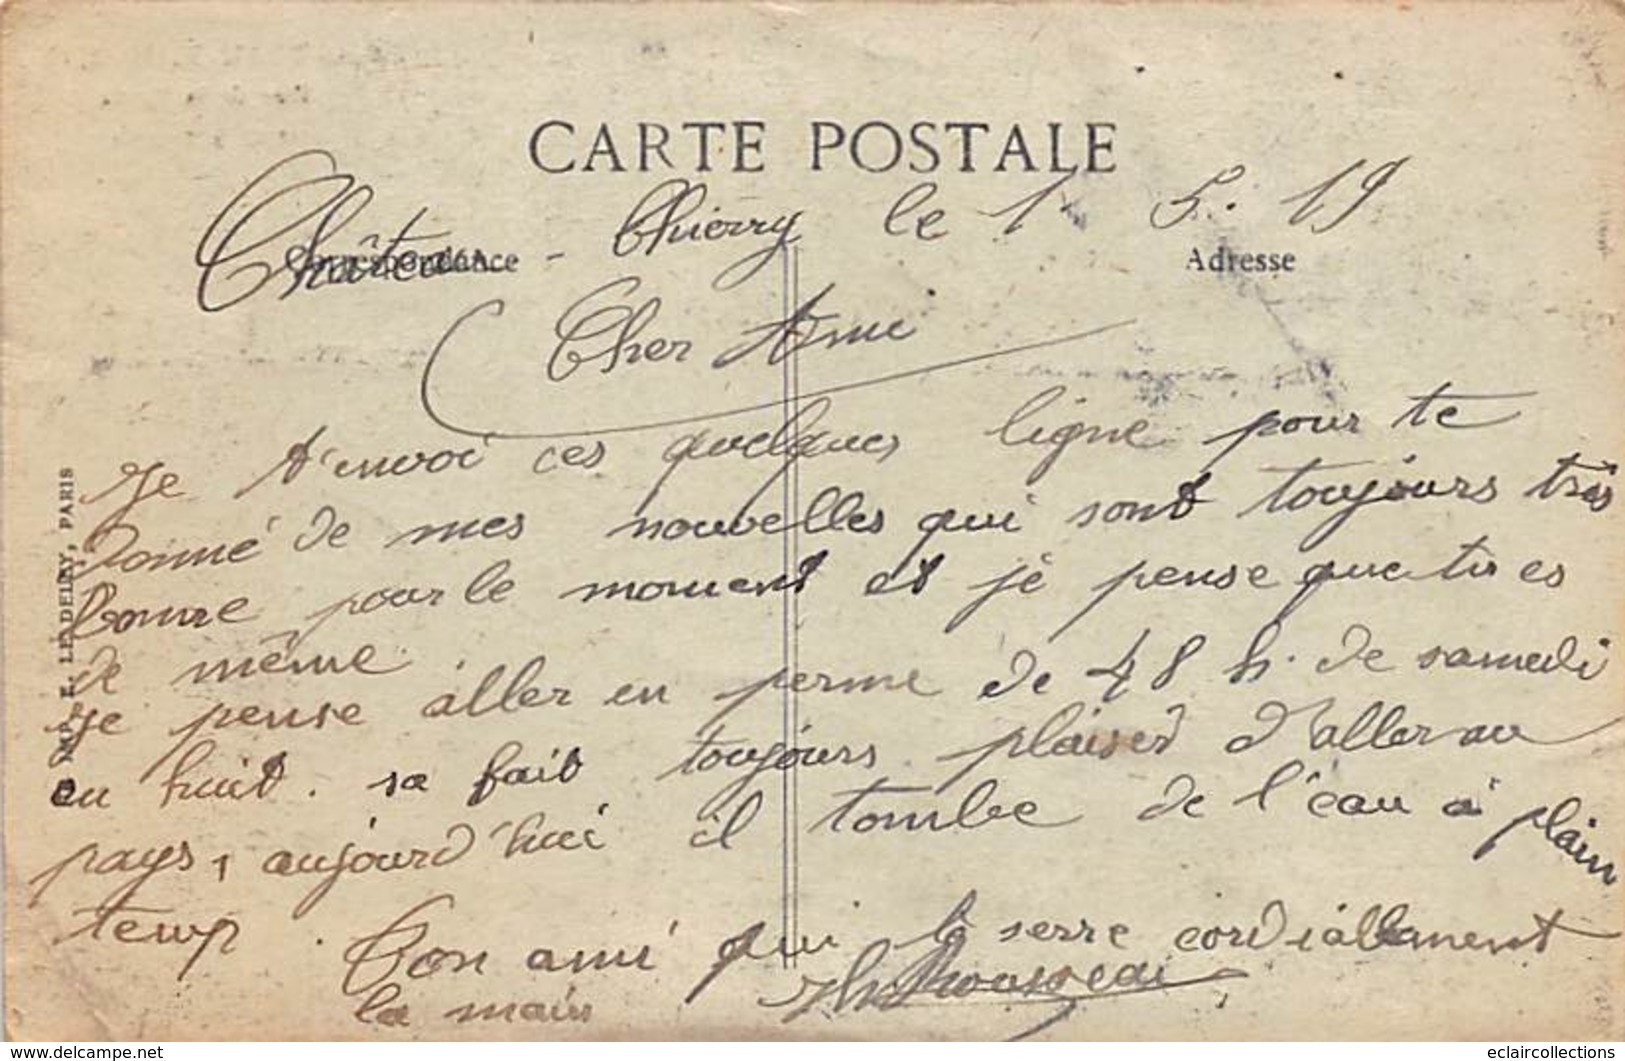 CARTE POSTALE
Château-Thierry le 1 5. 19
Correspondance
Adresse
Cher Ami
Je t'envoi ces quelques ligne pour te
donné de mes nouvelles qui sont toujours très
bonne pour le moment et je pense que tu es
de même
je pense aller en perme de 48 h. de samedi
en huit. sa fait toujours plaisir d'aller au
pays, aujourd'hui il tombe de l'eau à plain
temp.
Ton ami qui te serre cordiallement
la main
Rousseau
IMP. E. LE DELEY, PARIS
www.delcampe.net
eclaircollections